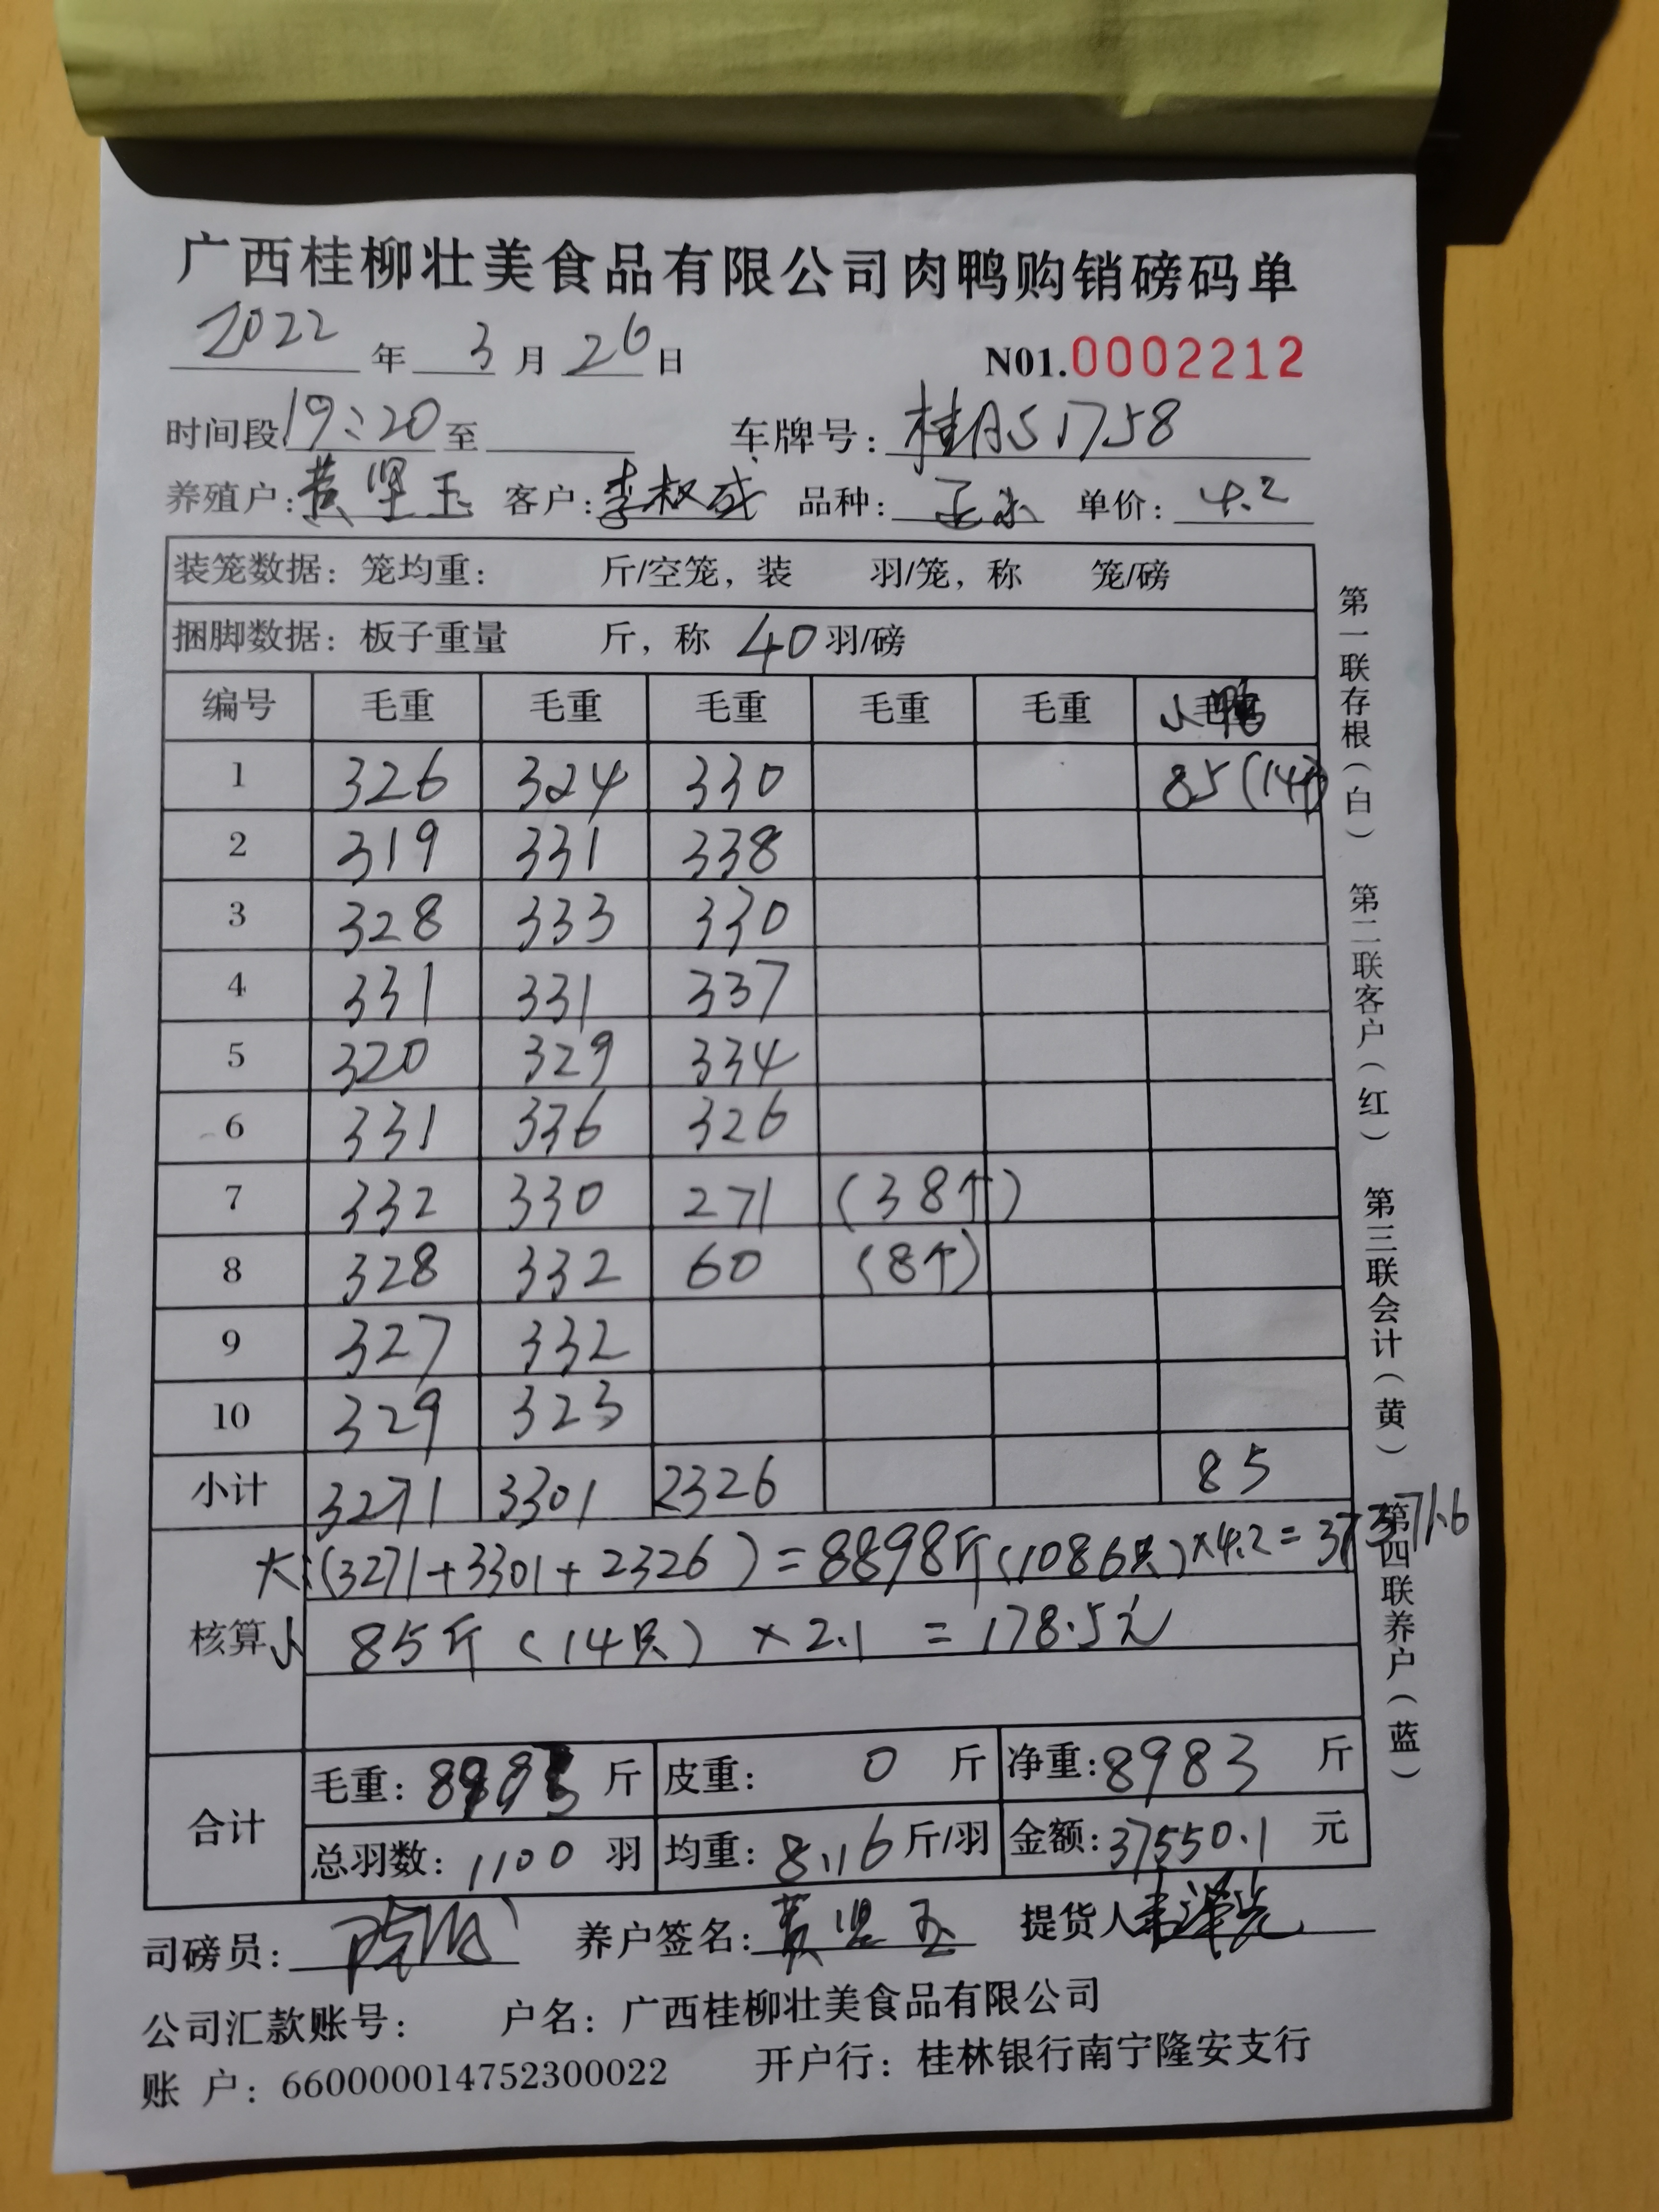 广西桂柳壮美食品有限公司肉鸭购销磅码单
2022 年 3 月 26 日 N01.0002212
时间段19:20至 车牌号:桂AS1758
养殖户:黄坚玉 客户:李权成 品种: 单价:4.2
装笼数据:笼均重: 斤/空笼,装 羽/笼,称 笼/磅
捆脚数据:板子重量 斤,称 40 羽/磅
编号 毛重 毛重 毛重 毛重 毛重 小鸭
1 326 324 330 85(14个)
2 319 331 338
3 328 333 330
4 331 331 337
5 320 329 334
6 331 336 326
7 332 330 271 (38个)
8 328 332 60 (8个)
9 327 332
10 329 323
小计 3271 3301 2326 85
核算 大:(3271+3301+2326)=8898斤(1086只)×4.2=37371.6
小 85斤(14只)×2.1=178.5元
合计 毛重:8983 斤 皮重: 0 斤 净重:8983 斤
总羽数:1100 羽 均重:8.16斤/羽 金额:37550.1 元
司磅员: 养户签名:黄坚玉 提货人
公司汇款账号: 户名:广西桂柳壮美食品有限公司
账 户:660000014752300022 开户行:桂林银行南宁隆安支行
第一联存根(白) 第二联客户(红) 第三联会计(黄) 第四联养户(蓝)